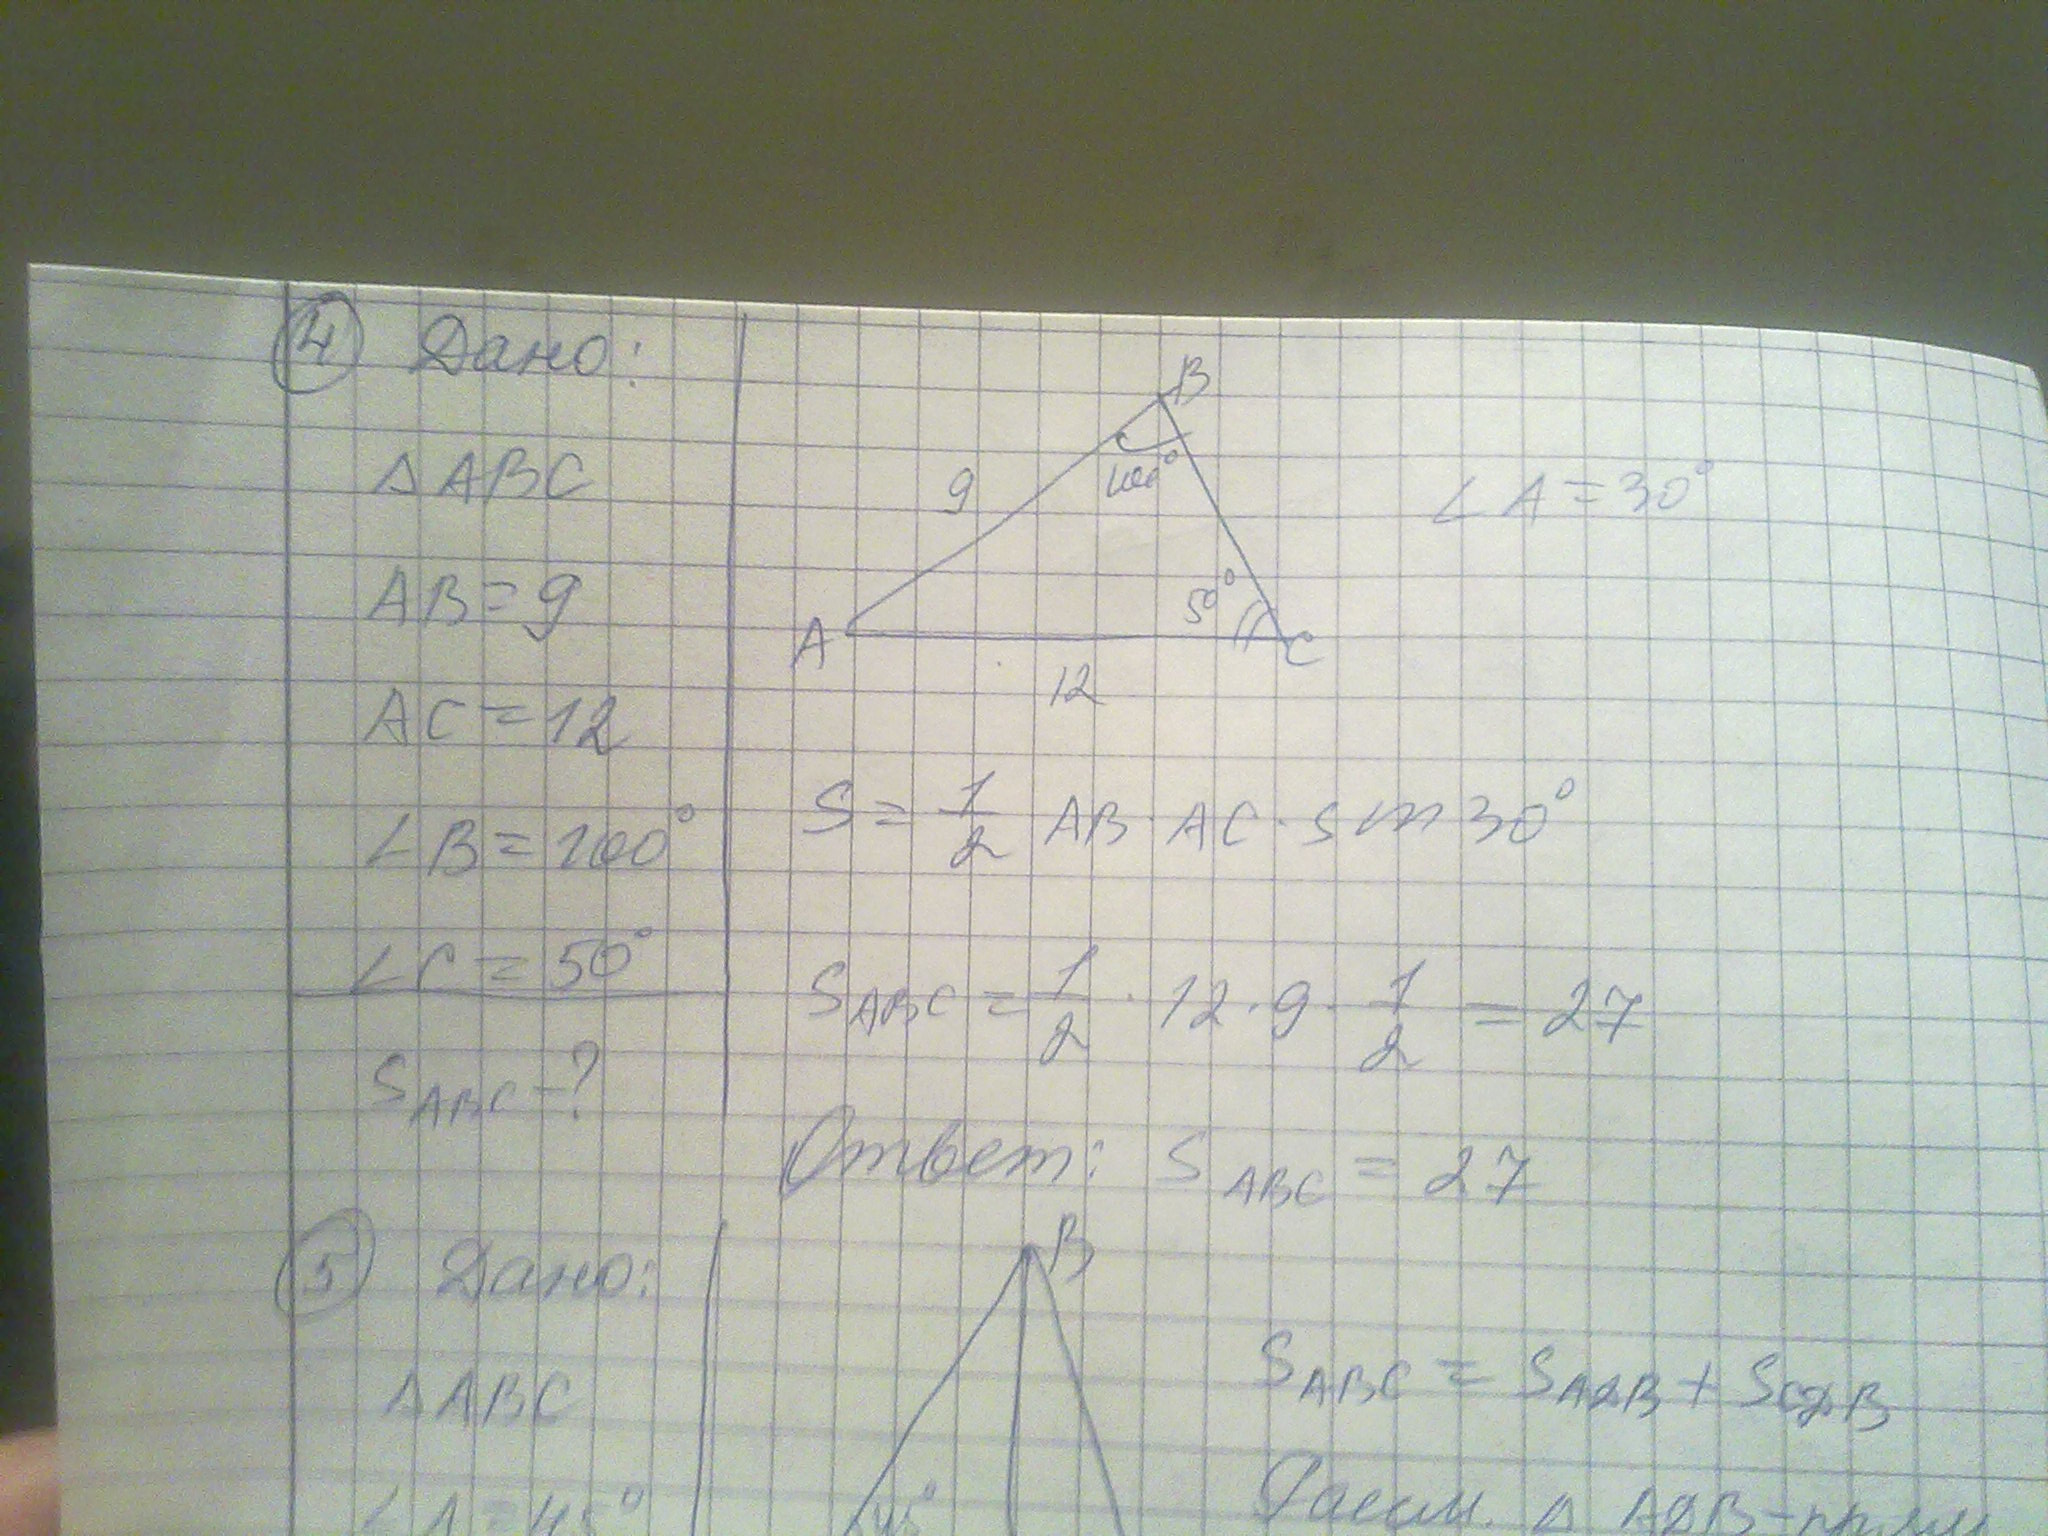 4 Дано:
△ABC
AB = 9
AC = 12
∠B = 100°
∠C = 50°
S ABC - ?
B
9
100°
50°
A
C
12
∠A = 30°
S = 1/2 AB · AC · sin 30°
S ABC = 1/2 · 12 · 9 · 1/2 = 27
Ответ: S ABC = 27
5 Дано:
△ABC
∠A = 45°
B
45°
S ABC = S ADB + S CDB
Рассм. △ ADB -